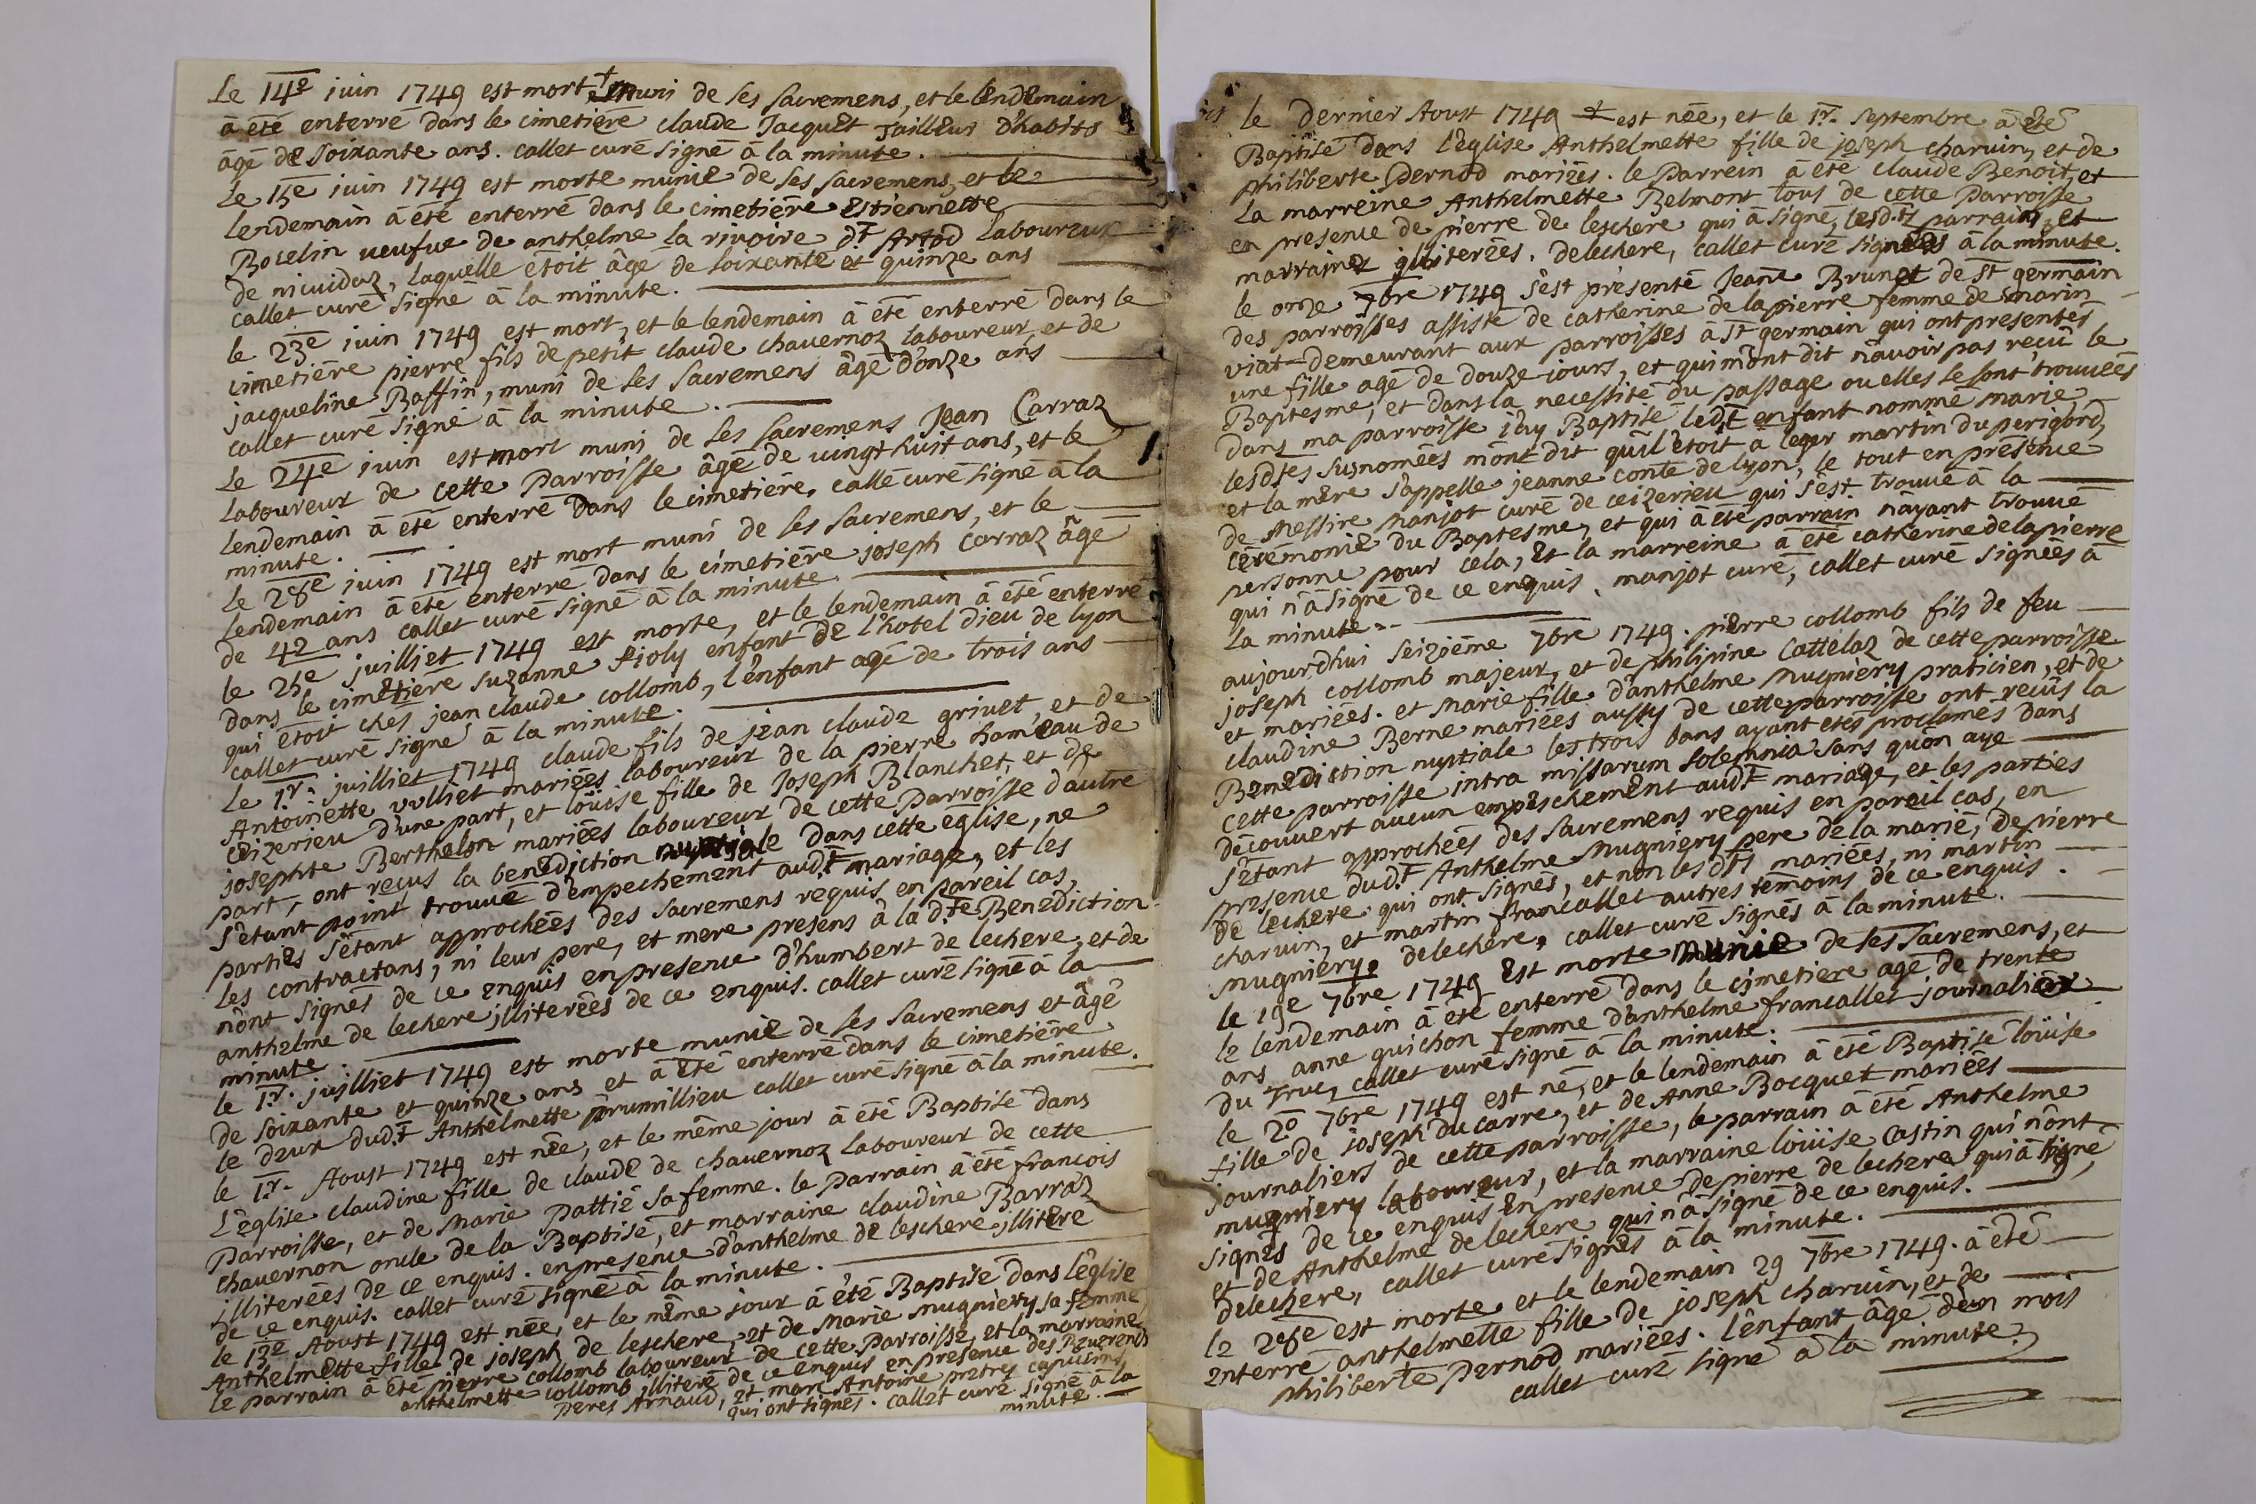 Le 14e juin 1749 est mort + muni de ses sacremens, et le lendemain
â êté enterré dans le cimetiêre claude Jacquet Tailleur d'habits
âgé de soixante ans. callet curé signé à la minute.
Le 15e juin 1749 est morte munie de ses sacremens, et le
lendemain â êté enterré dans le cimetiêre Estiennette
Bocelin veufue de anthelme la rivoire dt Artod laboureur
de nicuidoz, laquelle êtoit âgé de soixante et quinze ans
callet curé signé à la minute.
le 23e juin 1749 est mort, et le lendemain â êté enterré dans le
cimetiêre pierre fils de petit claude chavernoz laboureur, et de
jacqueline Baffin, muni de ses sacremens âgé d'onze ans
callet curé signé à la minute.
Le 24e juin est mort muni de ses sacremens Jean Carraz
laboureur de cette Parroisse âgé de vingt huit ans, et le
lendemain â êté enterré dans le cimetiêre. callé curé signé à la
minute.
Le 28e juin 1749 est mort muni de ses sacremens, et le
lendemain â êté enterré dans le cimetiêre joseph Carraz âgé
de 42 ans callet curé signé à la minute.
le 25e juilliet 1749 est morte, et le lendemain â êté enterré
dans le cimetiêre suzanne fioly enfant de l'hotel Dieu de lyon
qui êtoit ches jean claude collomb, l'enfant agé de trois ans
callet curé signé à la minute.
Le 1r. juilliet 1749 claude fils de jean claude grivet, et de
Antoinette vulliet mariées laboureur de la pierre haméau de
ceizerieu d'une part, et loüise fille de Joseph Blanchet, et de
josephte Berthelon mariées laboureur de cette Parroisse d'autre
part, ont reçus la benediction nuptiale dans cette eglise, ne
s'êtant point trouvé d'empechement audt mariage, et les
parties s'êtant approchées des sacremens requis en pareil cas,
les contractans, ni leur pere, et mere presens à la dte Benediction
n'ont signés de ce enquis en presence d'humbert de lechere, et de
anthelme de lechere jlliterées de ce enquis. callet curé signé à la
minute.
le 1r. juilliet 1749 est morte munie de ses sacremens et âgé
de soixante et quinze ans et â êté enterré dans le cimetiêre
le deux dudt Anthelmette prumillieu callet curé signé à la minute.
le 1r. Aoust 1749 est née, et le même jour â êté Baptisé dans
l'êglise claudine fille de claude de chavernoz laboureur de cette
Parroisse, et de Marie Pattie sa femme. le parrain â êté françois
chavernon oncle de la Baptisé, et marraine claudine Barraz
jlliterées de ce enquis. en presence d'anthelme de leschere jlliteré
de ce enquis. callet curé signé à la minute.
le 13e Aoust 1749 est née, et le même jour â êté Baptisé dans l'êglise
Anthelmette fille de joseph de leschere, et de Marie mugniery sa femme,
le parrain â êté pierre collomb laboureur de cette Parroisse, et la marraine
anthelmette collomb jlliteré de ce enquis en presence des Reuerends
peres Arnaud, et marc Antoine pretres capucins,
qui ont signés. callet curé signé à la
minute.
le dernier Aoust 1749 + est née, et le 1r. septembre â êté
Baptisé dans l'êglise Anthelmette fille de joseph charvin, et de
philiberte Pernod mariées. le parrein â êté claude Benoit, et
la marreine Anthelmette Belmont tous de cette Parroisse
en presence de pierre de leschere qui â signé, lesdts parrain, et
marraine jlliterées. delechere, callet curé signées à la minute.
le onze 7bre 1749 s'est présenté Jeane Brunet de St germain
des parroisses assisté de catherine de la pierre femme de marin
viat demeurant aux parroisses â St germain qui ont presentés
une fille agé de douze jours, et qui m'ont dit n'avoir pas reçû le
Baptesme, et dans la necessité du passage ou elles se sont trouvées
dans ma parroisse j'ay Baptisé ledt enfant nommé marie
lesdtes susnomées m'ont dit qu'il êtoit à martin du perigord,
et la mêre s'appelle jeanne conte de lyon, le tout en présence
de Messire Manjot curé de ceizerieu qui s'est trouvé à la
cêrémonie du Baptesme, et qui â êté parrain n'ayant trouvé
personne pour cela, et la marreine â êté catherine de la pierre
qui n'â signé de ce enquis. manjot curé, callet curé signées à
la minute.
aujourd'hui seiziême 7bre 1749. pierre collomb fils de feu
joseph collomb majeur, et de philipine Cattelaz de cette parroisse
et mariées. et Marie fille d'anthelme Mugniery praticien, et de
claudine Berne mariées aussy de cette parroisse ont reçûs la
Benediction nuptiale les trois bans ayant êtés proclamés dans
cette parroisse intra missarum solemnia sans qu'on aye
découvert aucun empeschement audt mariage, et les parties
s'êtant approchées des sacremens requis en pareil cas, en
presence dudt Anthelme Mugniery pere de la marié, de pierre
de lechere qui ont signés, et non les dts mariées, ni martin
charvin, et martin francallet autres têmoins de ce enquis.
mugniéry. delechere, callet curé signés à la minute.
le 19e 7bre 1749 est morte munie de ses sacremens, et
le lendemain â êté enterré dans le cimetiere agé de trente
ans anne guichon femme d'anthelme francallet journalier
du truc, callet curé signé à la minute.
le 20 7bre 1749 est né, et le lendemain â êté Baptisé loüise
fille de joseph du carre, et de Anne Bocquet mariées
journaliers de cette parroisse, le parrain â êté Anthelme
mugniery laboureur, et la marraine loüise Castin qui n'ont
signés de ce enquis en presence de pierre de lechere qui â signé,
et de Anthelme delechere qui n'â signé de ce enquis.
delechere, callet curé signés à la minute.
le 28e est morte et le lendemain 29 7bre 1749. â êté
enterré anthelmette fille de joseph charvin, et de
philiberte Pernod mariées. l'enfant âgé d'un mois
callet curé signé à la minute.